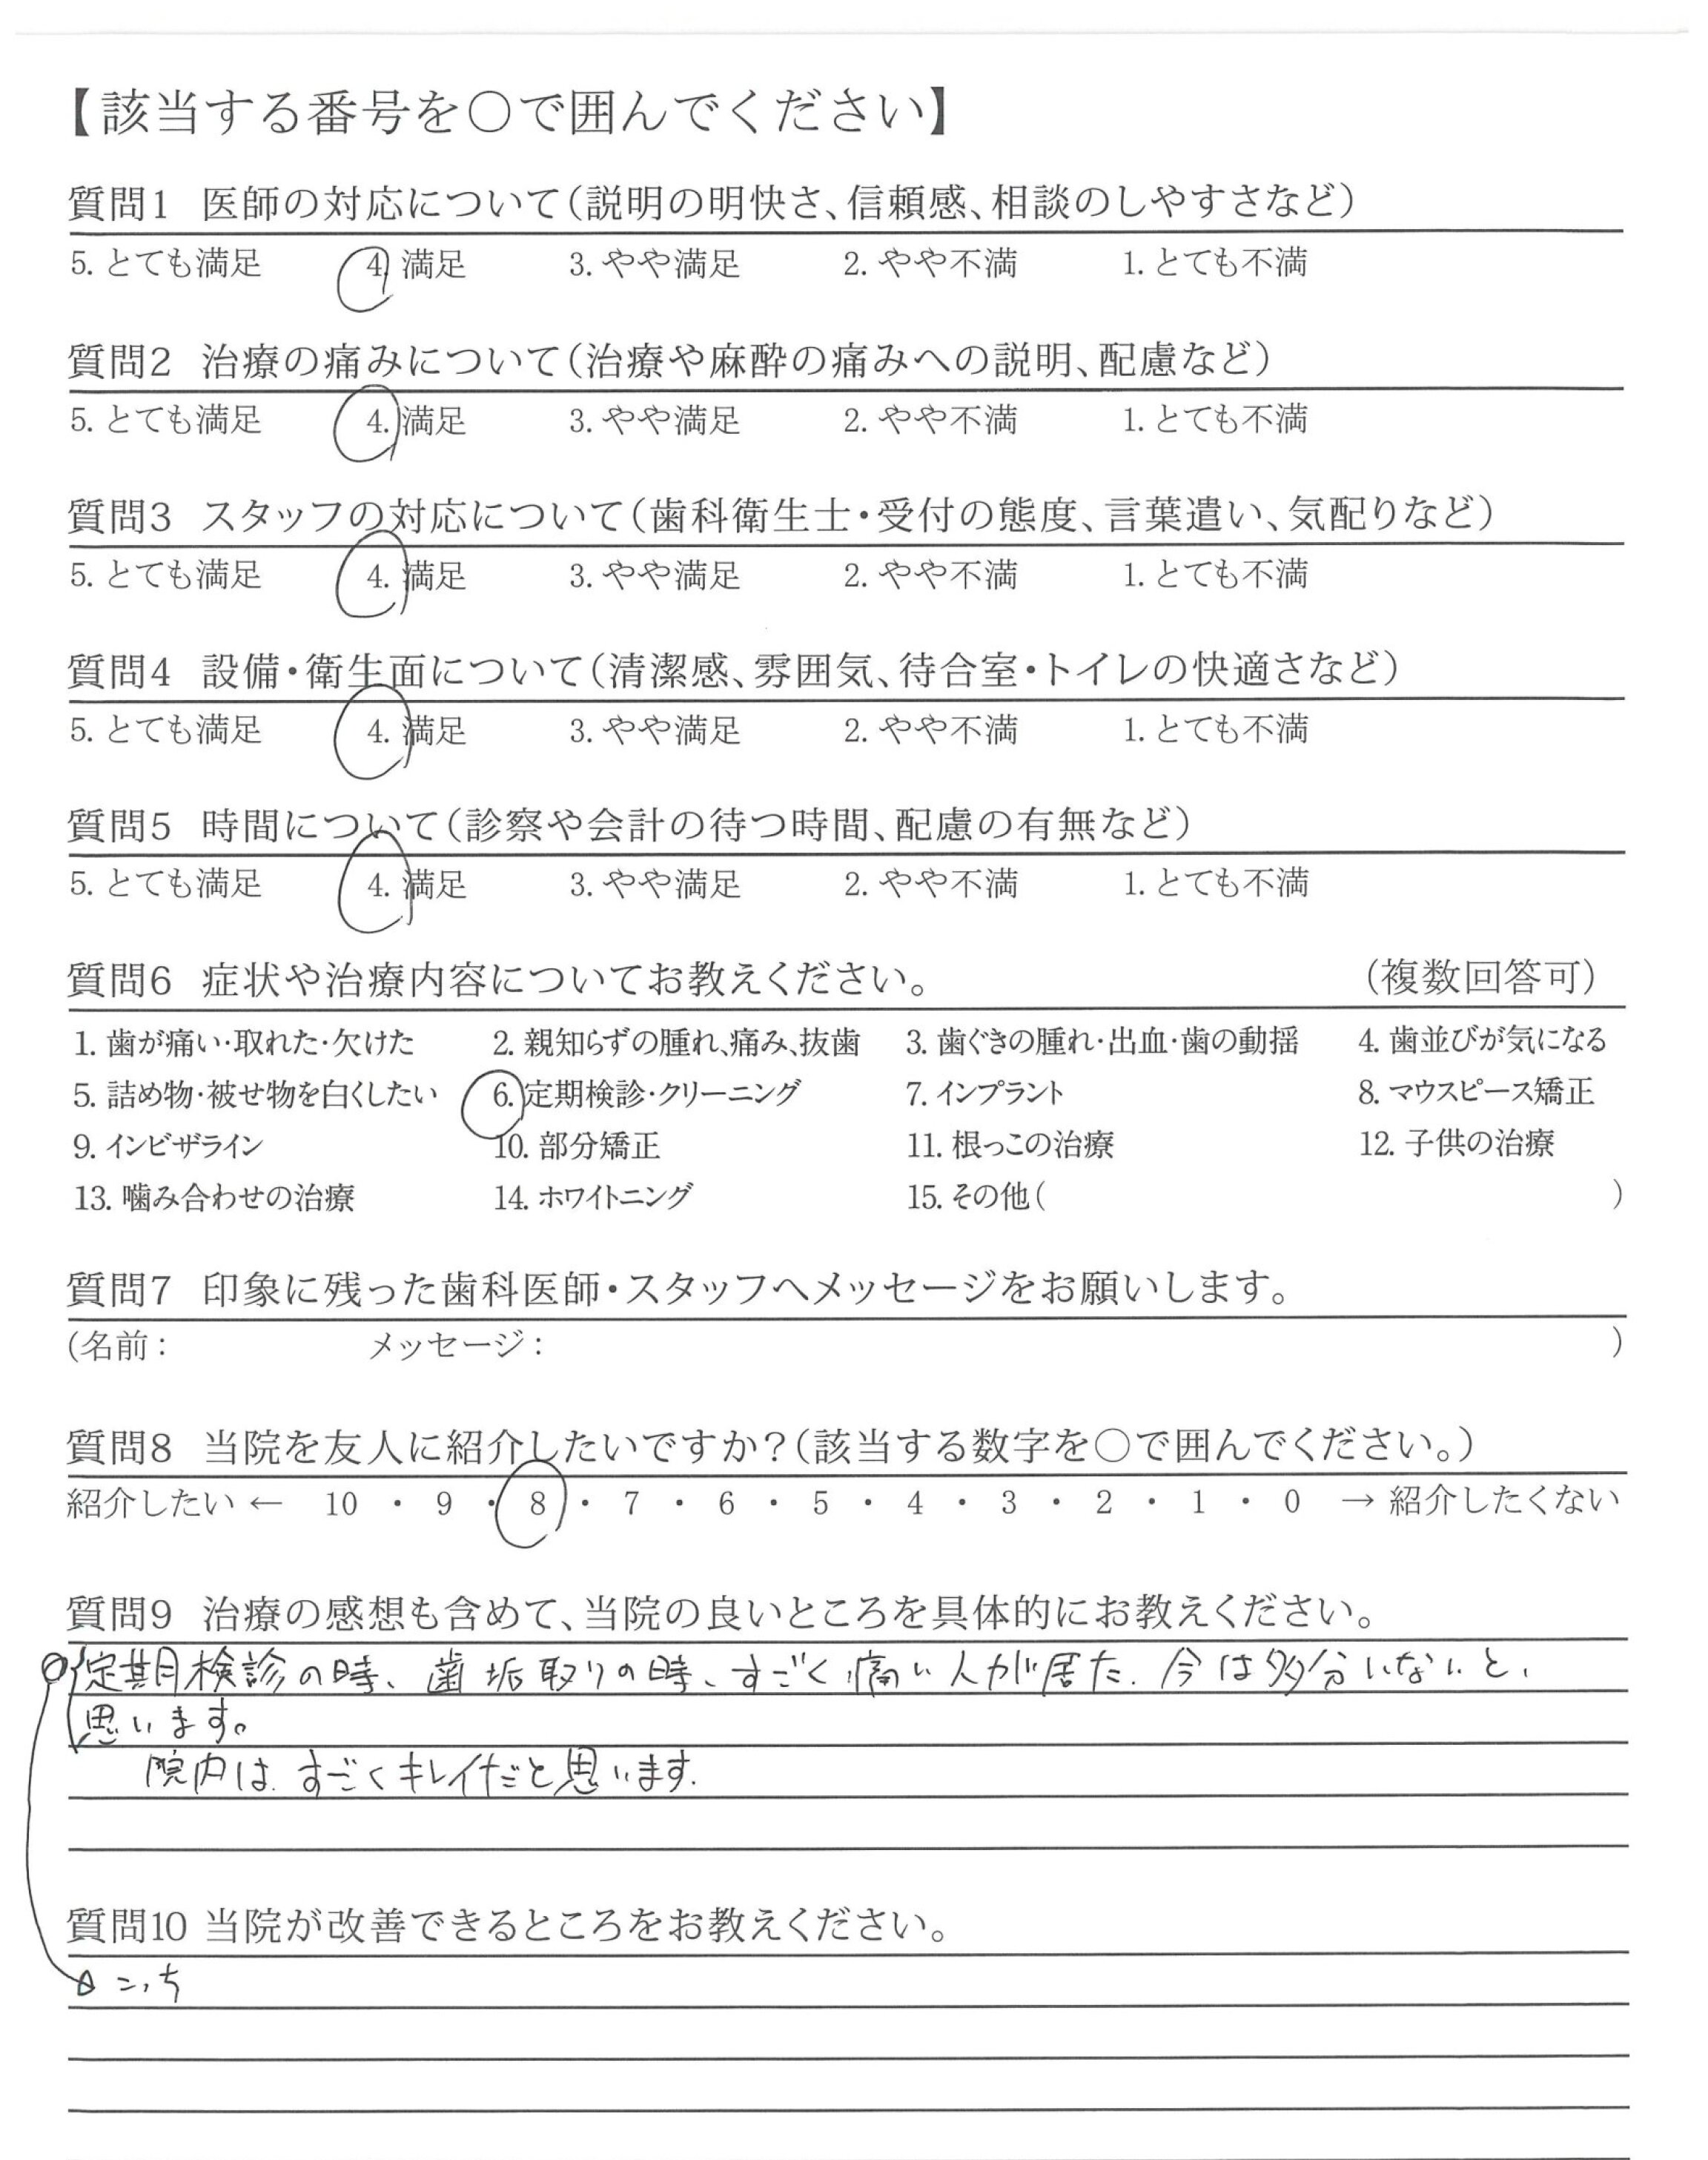 【該当する番号を○で囲んでください】
質問1 医師の対応について(説明の明快さ、信頼感、相談のしやすさなど)
5. とても満足 4. 満足 3. やや満足 2. やや不満 1. とても不満
質問2 治療の痛みについて(治療や麻酔の痛みへの説明、配慮など)
5. とても満足 4. 満足 3. やや満足 2. やや不満 1. とても不満
質問3 スタッフの対応について(歯科衛生士・受付の態度、言葉遣い、気配りなど)
5. とても満足 4. 満足 3. やや満足 2. やや不満 1. とても不満
質問4 設備・衛生面について(清潔感、雰囲気、待合室・トイレの快適さなど)
5. とても満足 4. 満足 3. やや満足 2. やや不満 1. とても不満
質問5 時間について(診察や会計の待つ時間、配慮の有無など)
5. とても満足 4. 満足 3. やや満足 2. やや不満 1. とても不満
質問6 症状や治療内容についてお教えください。 (複数回答可)
1. 歯が痛い・取れた・欠けた 2. 親知らずの腫れ、痛み、抜歯 3. 歯ぐきの腫れ・出血・歯の動揺 4. 歯並びが気になる
5. 詰め物・被せ物を白くしたい 6. 定期検診・クリーニング 7. インプラント 8. マウスピース矯正
9. インビザライン 10. 部分矯正 11. 根っこの治療 12. 子供の治療
13. 噛み合わせの治療 14. ホワイトニング 15. その他( )
質問7 印象に残った歯科医師・スタッフへメッセージをお願いします。
(名前: メッセージ: )
質問8 当院を友人に紹介したいですか?(該当する数字を○で囲んでください。)
紹介したい ← 10 ・ 9 ・ 8 ・ 7 ・ 6 ・ 5 ・ 4 ・ 3 ・ 2 ・ 1 ・ 0 → 紹介したくない
質問9 治療の感想も含めて、当院の良いところを具体的にお教えください。
定期検診の時、歯垢取りの時、すごく痛い人が居た。今は多分いないと、
思います。
院内は、すごくキレイだと思います。
質問10 当院が改善できるところをお教えください。
こっち